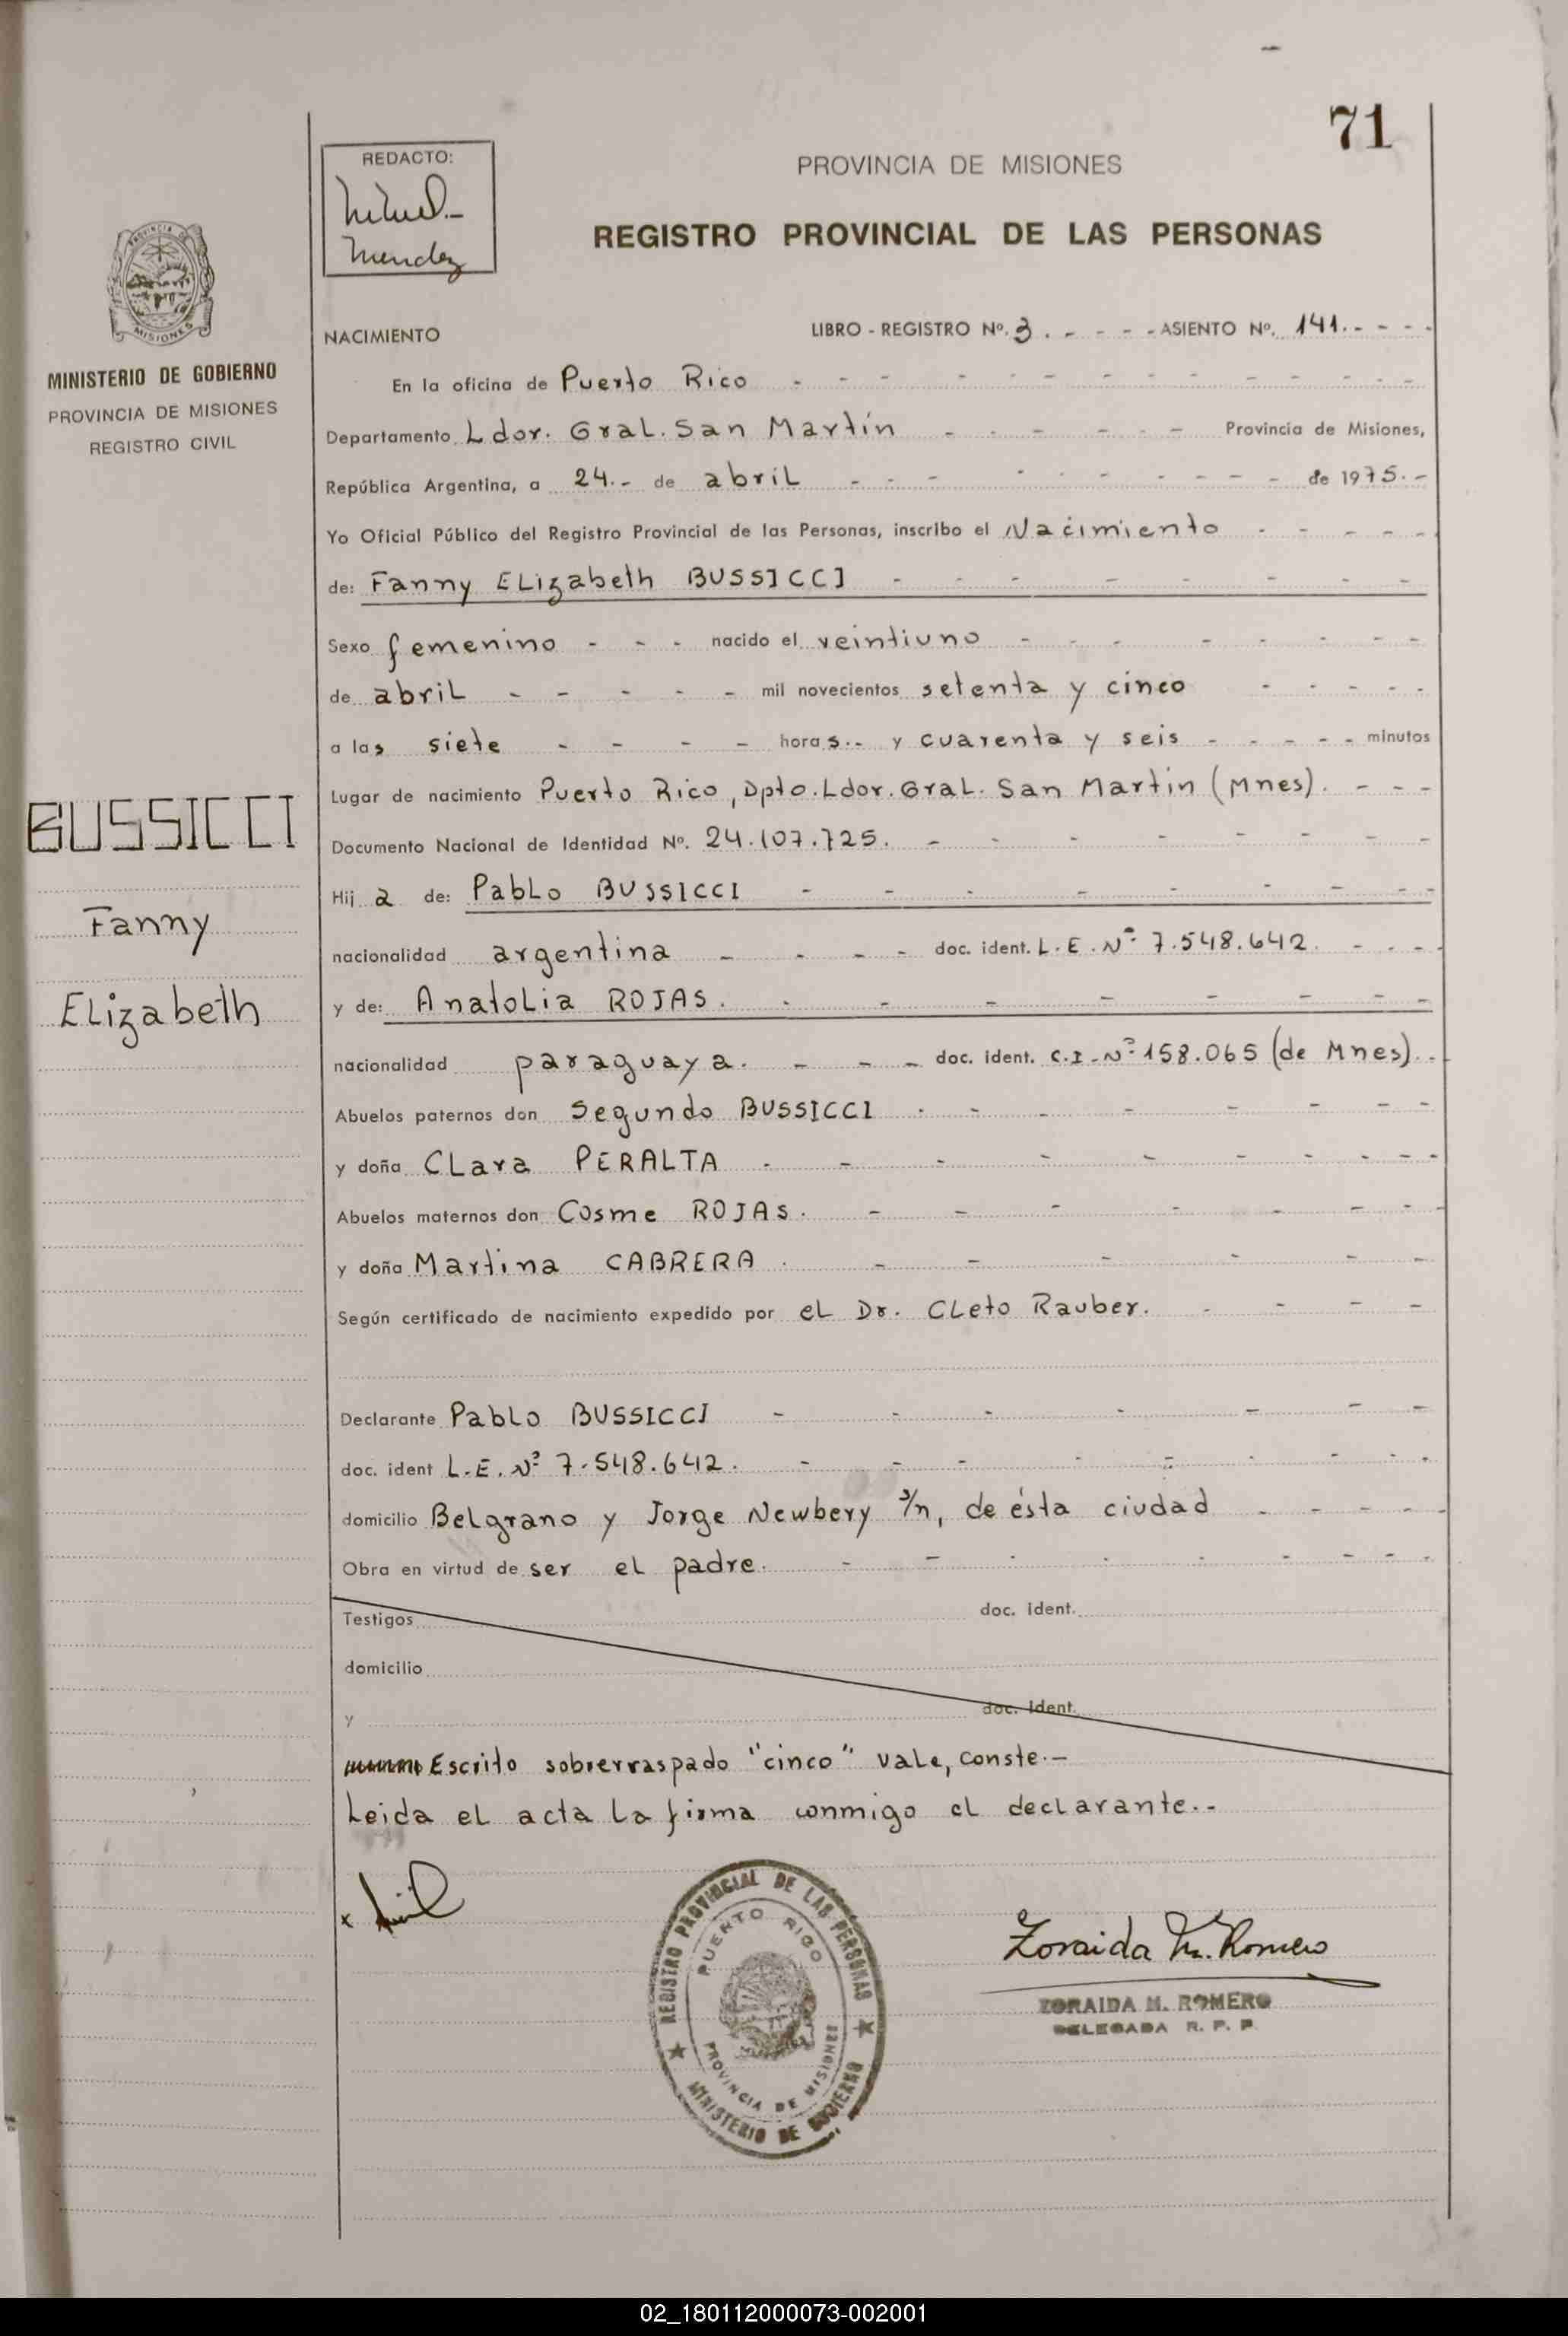 71
REDACTO:
Mendez
PROVINCIA DE MISIONES
REGISTRO PROVINCIAL DE LAS PERSONAS
PROVINCIA DE
MISIONES
MINISTERIO DE GOBIERNO
PROVINCIA DE MISIONES
REGISTRO CIVIL
BUSSICCI
Fanny
Elizabeth
NACIMIENTO LIBRO - REGISTRO Nº. 3. - - - - ASIENTO Nº. 141. - - - -
En la oficina de Puerto Rico
Departamento Ldor. Gral. San Martín - - - - - - Provincia de Misiones,
República Argentina, a 24.- de abril - - - - - - - - - de 1975.-
Yo Oficial Público del Registro Provincial de las Personas, inscribo el Nacimiento
de: Fanny Elizabeth BUSSICCI
Sexo femenino - - - nacido el veintiuno
de abril - - - - - mil novecientos setenta y cinco
a las siete - - - - horas.- y cuarenta y seis - - - - - minutos
Lugar de nacimiento Puerto Rico, Dpto. Ldor. Gral. San Martin (Mnes). - - -
Documento Nacional de Identidad Nº. 24.107.725.
Hija de: Pablo BUSSICCI
nacionalidad argentina - - - - doc. ident. L.E. Nº 7.548.642. - - - -
y de: Anatolia ROJAS.
nacionalidad paraguaya. - - - doc. ident. C.I. Nº 158.065 (de Mnes).-
Abuelos paternos don Segundo BUSSICCI
y doña Clara PERALTA
Abuelos maternos don Cosme ROJAS.
y doña Martina CABRERA
Según certificado de nacimiento expedido por el Dr. Cleto Rauber.
Declarante Pablo BUSSICCI
doc. ident L.E. Nº 7.548.642.
domicilio Belgrano y Jorge Newbery s/n, de ésta ciudad
Obra en virtud de ser el padre.
Testigos doc. ident.
domicilio
y doc. ident.
Escrito sobrerraspado "cinco" vale, conste.-
Leida el acta la firma conmigo el declarante.-
x
REGISTRO PROVINCIAL DE LAS PERSONAS
PUERTO RICO
PROVINCIA DE MISIONES
MINISTERIO DE GOBIERNO
Zoraida M. Romero
ZORAIDA M. ROMERO
DELEGADA R. P. P.
02_180112000073-002001